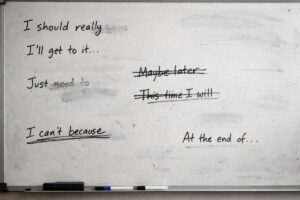 I should really
I'll get to it...
Just need to
Maybe later
This time I will
I can't because
At the end of...